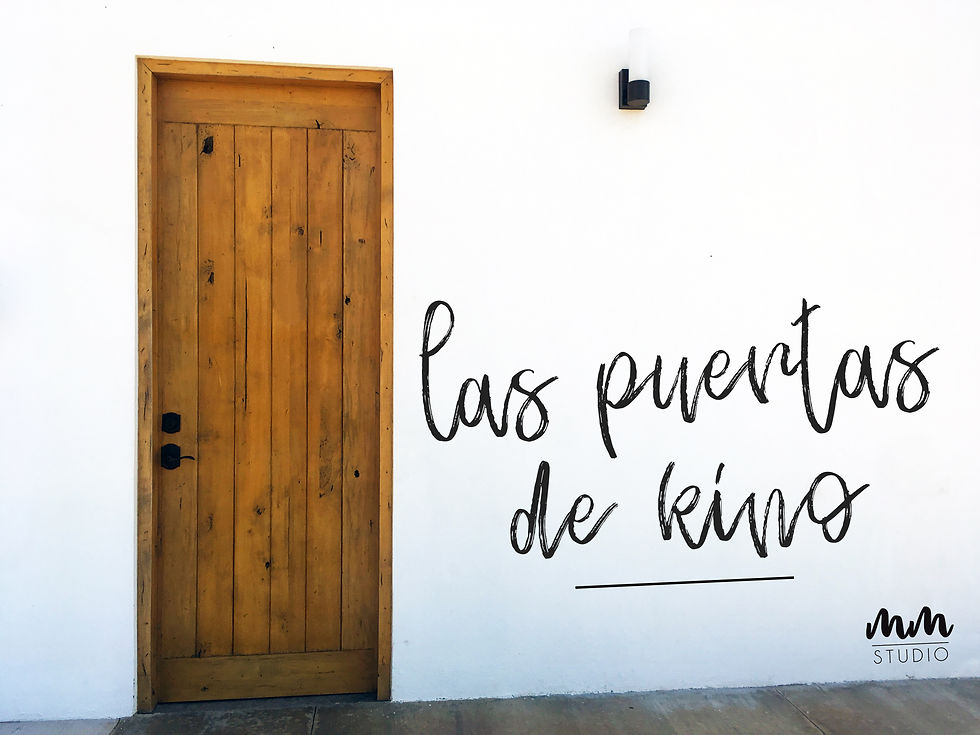 las puertas
de kino
MM
STUDIO